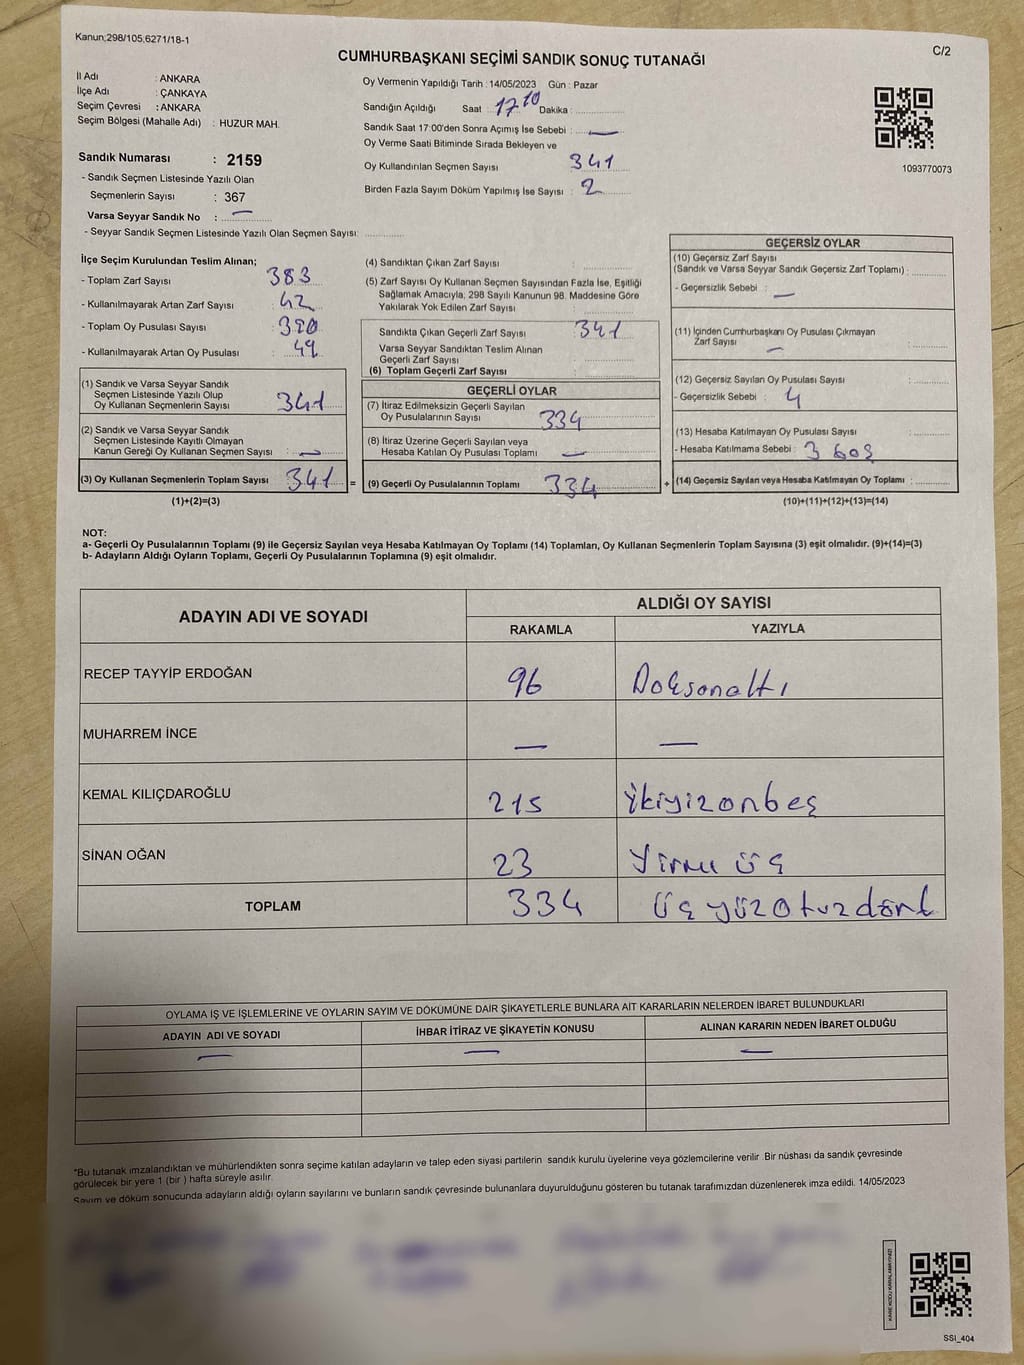 Kanun;298/105,6271/18-1
C/2
CUMHURBAŞKANI SEÇİMİ SANDIK SONUÇ TUTANAĞI
İl Adı : ANKARA
İlçe Adı : ÇANKAYA
Seçim Çevresi : ANKARA
Seçim Bölgesi (Mahalle Adı) : HUZUR MAH.
Sandık Numarası : 2159
- Sandık Seçmen Listesinde Yazılı Olan
Seçmenlerin Sayısı : 367
Varsa Seyyar Sandık No : —
- Seyyar Sandık Seçmen Listesinde Yazılı Olan Seçmen Sayısı:
Oy Vermenin Yapıldığı Tarih : 14/05/2023 Gün : Pazar
Sandığın Açıldığı Saat : 17 10 Dakika :
Sandık Saat 17:00'den Sonra Açımış İse Sebebi : —
Oy Verme Saati Bitiminde Sırada Bekleyen ve
Oy Kullandırılan Seçmen Sayısı : 341
Birden Fazla Sayım Döküm Yapılmış İse Sayısı : 2
1093770073
İlçe Seçim Kurulundan Teslim Alınan;
- Toplam Zarf Sayısı : 383
- Kullanılmayarak Artan Zarf Sayısı : 42
- Toplam Oy Pusulası Sayısı :
- Kullanılmayarak Artan Oy Pusulası : 49
(1) Sandık ve Varsa Seyyar Sandık
Seçmen Listesinde Yazılı Olup
Oy Kullanan Seçmenlerin Sayısı : 341
(2) Sandık ve Varsa Seyyar Sandık
Seçmen Listesinde Kayıtlı Olmayan
Kanun Gereği Oy Kullanan Seçmen Sayısı : —
(3) Oy Kullanan Seçmenlerin Toplam Sayısı : 341 =
(1)+(2)=(3)
(4) Sandıktan Çıkan Zarf Sayısı :
(5) Zarf Sayısı Oy Kullanan Seçmen Sayısından Fazla İse, Eşitliği
Sağlamak Amacıyla, 298 Sayılı Kanunun 98. Maddesine Göre
Yakılarak Yok Edilen Zarf Sayısı :
Sandıkta Çıkan Geçerli Zarf Sayısı : 341
Varsa Seyyar Sandıktan Teslim Alınan
Geçerli Zarf Sayısı :
(6) Toplam Geçerli Zarf Sayısı :
GEÇERLİ OYLAR
(7) İtiraz Edilmeksizin Geçerli Sayılan
Oy Pusulalarının Sayısı : 334
(8) İtiraz Üzerine Geçerli Sayılan veya
Hesaba Katılan Oy Pusulası Toplamı : —
(9) Geçerli Oy Pusulalarının Toplamı : 334 +
GEÇERSİZ OYLAR
(10) Geçersiz Zarf Sayısı
(Sandık ve Varsa Seyyar Sandık Geçersiz Zarf Toplamı) :
- Geçersizlik Sebebi : —
(11) İçinden Cumhurbaşkanı Oy Pusulası Çıkmayan
Zarf Sayısı : —
(12) Geçersiz Sayılan Oy Pusulası Sayısı :
- Geçersizlik Sebebi : 4
(13) Hesaba Katılmayan Oy Pusulası Sayısı :
- Hesaba Katılmama Sebebi : 3 boş
(14) Geçersiz Sayılan veya Hesaba Katılmayan Oy Toplamı :
(10)+(11)+(12)+(13)=(14)
NOT:
a- Geçerli Oy Pusulalarının Toplamı (9) ile Geçersiz Sayılan veya Hesaba Katılmayan Oy Toplamı (14) Toplamları, Oy Kullanan Seçmenlerin Toplam Sayısına (3) eşit olmalıdır. (9)+(14)=(3)
b- Adayların Aldığı Oyların Toplamı, Geçerli Oy Pusulalarının Toplamına (9) eşit olmalıdır.
ADAYIN ADI VE SOYADI ALDIĞI OY SAYISI
RAKAMLA YAZIYLA
RECEP TAYYİP ERDOĞAN 96 Doksanaltı
MUHARREM İNCE — —
KEMAL KILIÇDAROĞLU 215 ikiyüzonbeş
SİNAN OĞAN 23 Yirmi üç
TOPLAM 334 üç yüz otuz dört
OYLAMA İŞ VE İŞLEMLERİNE VE OYLARIN SAYIM VE DÖKÜMÜNE DAİR ŞİKAYETLERLE BUNLARA AİT KARARLARIN NELERDEN İBARET BULUNDUKLARI
ADAYIN ADI VE SOYADI İHBAR İTİRAZ VE ŞİKAYETİN KONUSU ALINAN KARARIN NEDEN İBARET OLDUĞU
— — —
*Bu tutanak imzalandıktan ve mühürlendikten sonra seçime katılan adayların ve talep eden siyasi partilerin sandık kurulu üyelerine veya gözlemcilerine verilir. Bir nüshası da sandık çevresinde
görülecek bir yere 1 (bir ) hafta süreyle asılır.
Sayım ve döküm sonucunda adayların aldığı oyların sayılarını ve bunların sandık çevresinde bulunanlara duyurulduğunu gösteren bu tutanak tarafımızdan düzenlenerek imza edildi. 14/05/2023
SSI_404